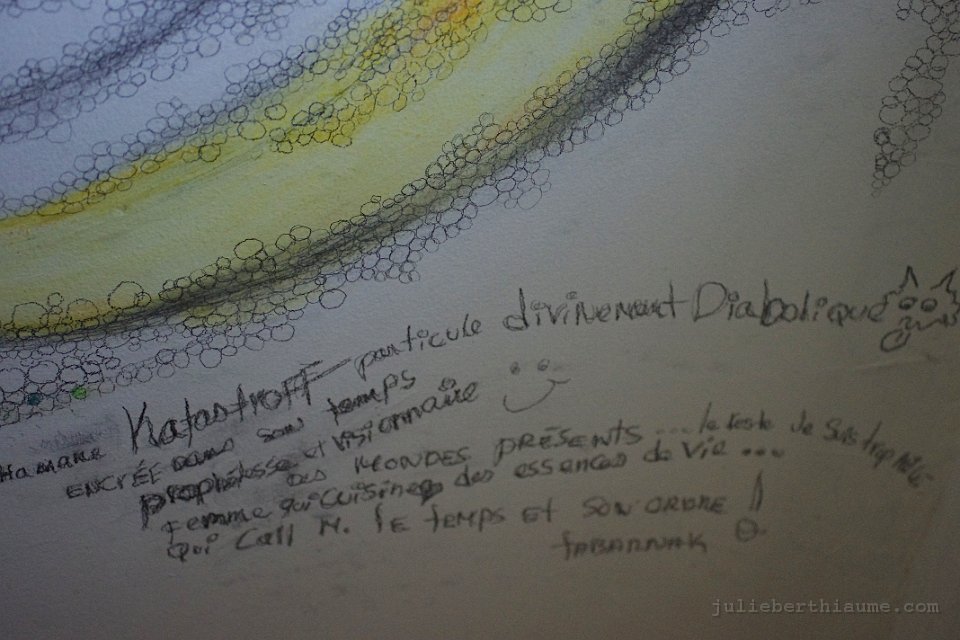 Katastroff particule divinement Diabolique
ENCRÉE dans son temps
prophétesse et visionnaire
DES MONDES PRÉSENTS ... le reste je suis trop
femme qui cuisine des essences de vie ...
qui call M. le temps et son ordre !
TABARNAK
julieberthiaume.com